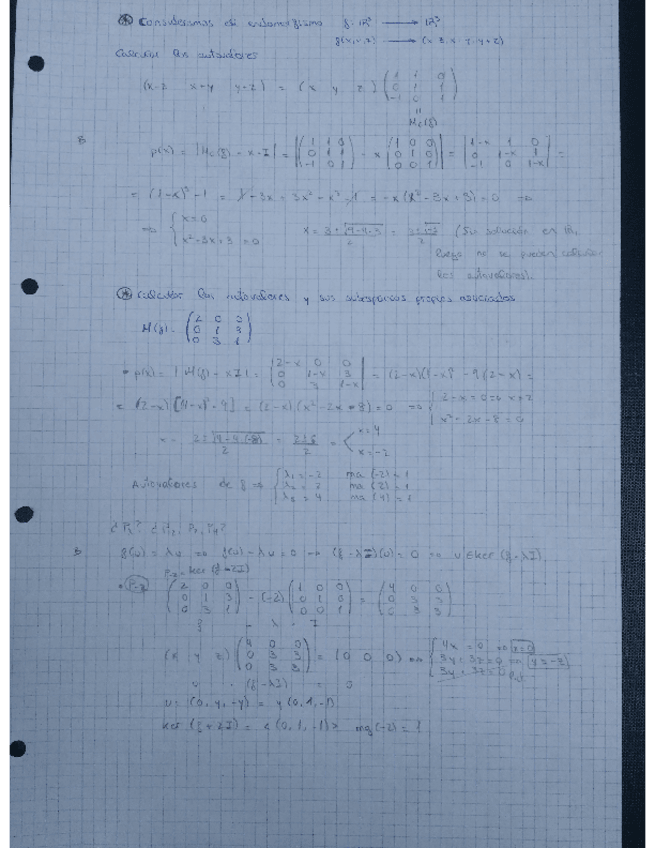 ⊛ Consideramos el endomorfismo f: ℝ³ → ℝ³
f(x,y,z) → (x-z, x+y, y+z)
Calcular los autovalores
(x-z x+y y+z) = (x y z) (1 1 0; 0 1 1; -1 0 1)
M_c(f)
p(x) = |M_c(f) - x·I| = |(1 1 0; 0 1 1; -1 0 1) - x (1 0 0; 0 1 0; 0 0 1)| = |1-x 1 0; 0 1-x 1; -1 0 1-x| =
= (1-x)³ - 1 = 1 - 3x + 3x² - x³ - 1 = -x (x² - 3x + 3) = 0 ⇒
⇒ { x=0; x²-3x+3 = 0
x = 3±√9-4·3 / 2 = 3±√-3 / 2 (Sin solución en ℝ,
luego no se pueden calcular
los autovalores).
⊛ Calcular los autovalores y sus subespacios propios asociados
M(f) = (2 0 0; 0 1 3; 0 3 1)
• p(x) = |M(f) - xI| = |2-x 0 0; 0 1-x 3; 0 3 1-x| = (2-x)(1-x)² - 9(2-x) =
= (2-x)[(1-x)² - 9] = (2-x)(x² - 2x - 8) = 0 ⇒ { 2-x=0 ⇒ x=2; x²-2x-8=0
x = 2±√4-4·(-8) / 2 = 2±6 / 2 = < x=4; x=-2
Autovalores de f ⇒ { λ₁=-2 ma(-2)=1; λ₂=2 ma(2)=1; λ₃=4 ma(4)=1
f(u) = λu ⇒ f(u) - λu = 0 ⇒ (f - λI)(u) = 0 ⇒ u ∈ ker (f - λI)
P₋₂ = ker (f+2I)
• P₋₂ (2 0 0; 0 1 3; 0 3 1) - (-2) (1 0 0; 0 1 0; 0 0 1) = (4 0 0; 0 3 3; 0 3 3)
f - λ · I
(x y z) (4 0 0; 0 3 3; 0 3 3) = (0 0 0) ⇒ { 4x = 0 ⇒ x=0; 3y+3z=0 ⇒ y=-z; 3y+3z=0
u · (f-λI) = 0
u = (0, y, -y) = y (0, 1, -1)
ker (f + 2I) = < (0, 1, -1) > mg(-2) = 1